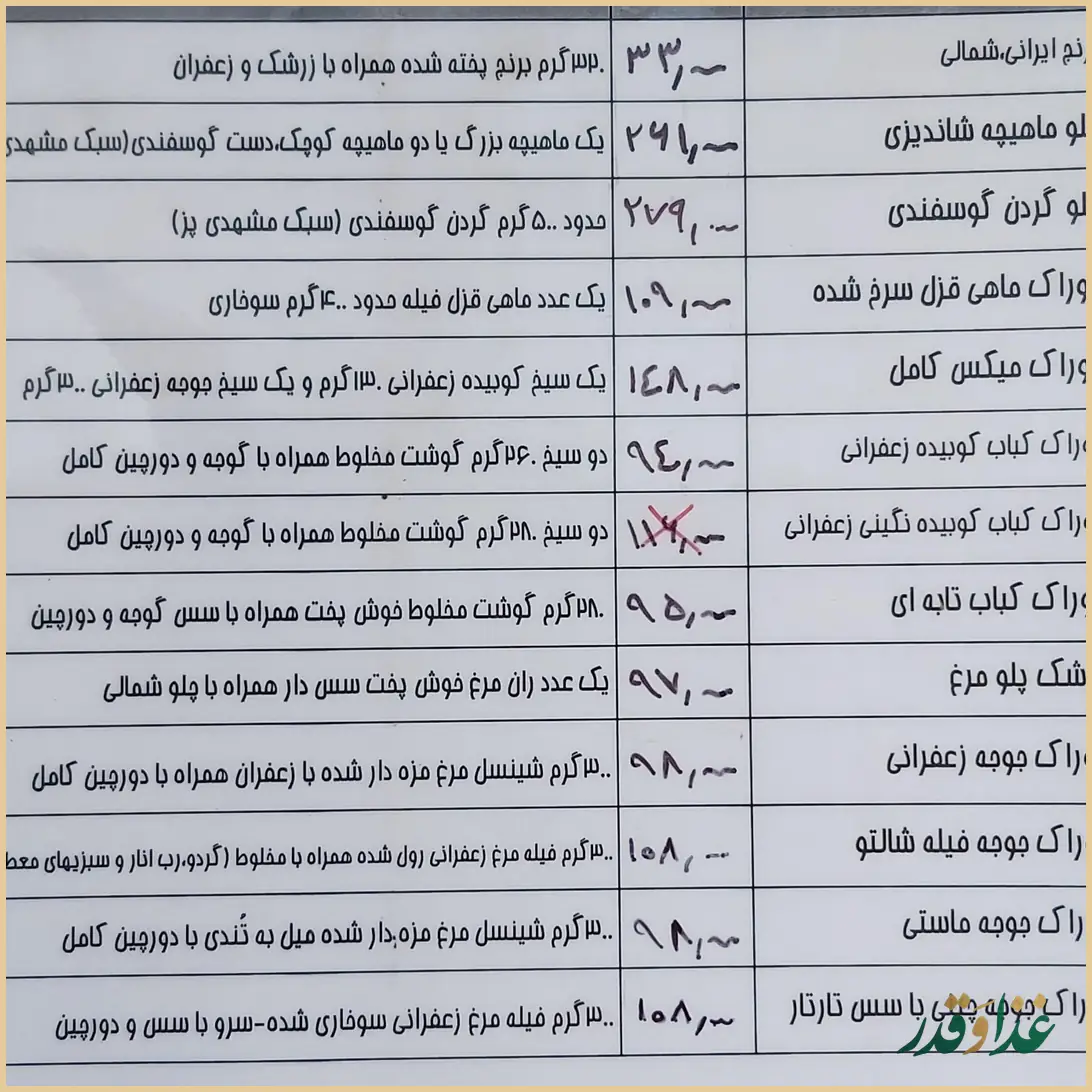 رنج ایرانی،شمالی ۳۳,۰۰۰ ۳۲۰گرم برنج پخته شده همراه با زرشک و زعفران
لو ماهیچه شاندیزی ۲۶۱,۰۰۰ یک ماهیچه بزرگ یا دو ماهیچه کوچک،دست گوسفندی(سبک مشهدی
لو گردن گوسفندی ۲۷۹,۰۰۰ حدود ۵۰۰گرم گردن گوسفندی (سبک مشهدی پز)
وراک ماهی قزل سرخ شده ۱۰۹,۰۰۰ یک عدد ماهی قزل فیله حدود ۴۰۰گرم سوخاری
وراک میکس کامل ۱۴۸,۰۰۰ یک سیخ کوبیده زعفرانی ۱۳۰گرم و یک سیخ جوجه زعفرانی ۳۰۰گرم
وراک کباب کوبیده زعفرانی ۹۴,۰۰۰ دو سیخ ۲۶۰گرم گوشت مخلوط همراه با گوجه و دورچین کامل
وراک کباب کوبیده نگینی زعفرانی ۱۱۶,۰۰۰ دو سیخ ۲۸۰گرم گوشت مخلوط همراه با گوجه و دورچین کامل
وراک کباب تابه ای ۹۵,۰۰۰ ۲۸۰گرم گوشت مخلوط خوش پخت همراه با سس گوجه و دورچین
شک پلو مرغ ۹۷,۰۰۰ یک عدد ران مرغ خوش پخت سس دار همراه با چلو شمالی
راک جوجه زعفرانی ۹۸,۰۰۰ ۳۰۰گرم شینسل مرغ مزه دار شده با زعفران همراه با دورچین کامل
راک جوجه فیله شالتو ۱۰۸,۰۰۰ ۳۰۰گرم فیله مرغ زعفرانی رول شده همراه با مخلوط (گردو،رب انار و سبزیهای معط
راک جوجه ماستی ۹۸,۰۰۰ ۳۰۰گرم شینسل مرغ مزه دار شده میل به تُندی با دورچین کامل
راک جوجه چتی با سس تارتار ۱۰۸,۰۰۰ ۳۰۰گرم فیله مرغ زعفرانی سوخاری شده-سرو با سس و دورچین
غذا و قدر